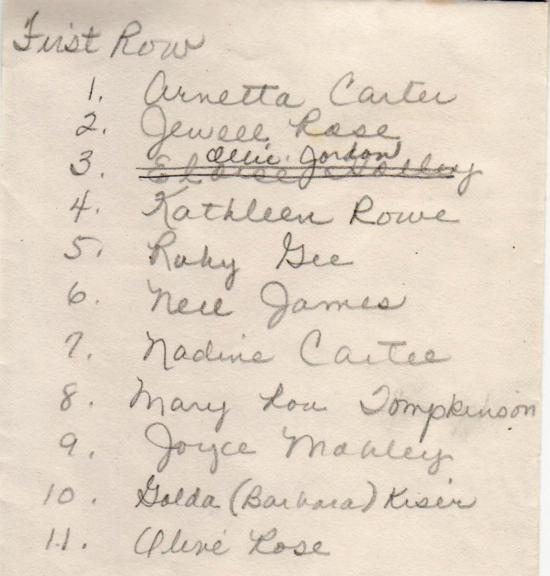 First Row
1. Arnetta Carter
2. Jewell Rose
Ollie Jordon
3. Eloise
4. Kathleen Rowe
5. Ruby Gee
6. Nell James
7. Nadine Cartee
8. Mary Lou Tompkinson
9. Joyce Mobley
10. Golda (Barbara) Kiser
11. Olive Rose